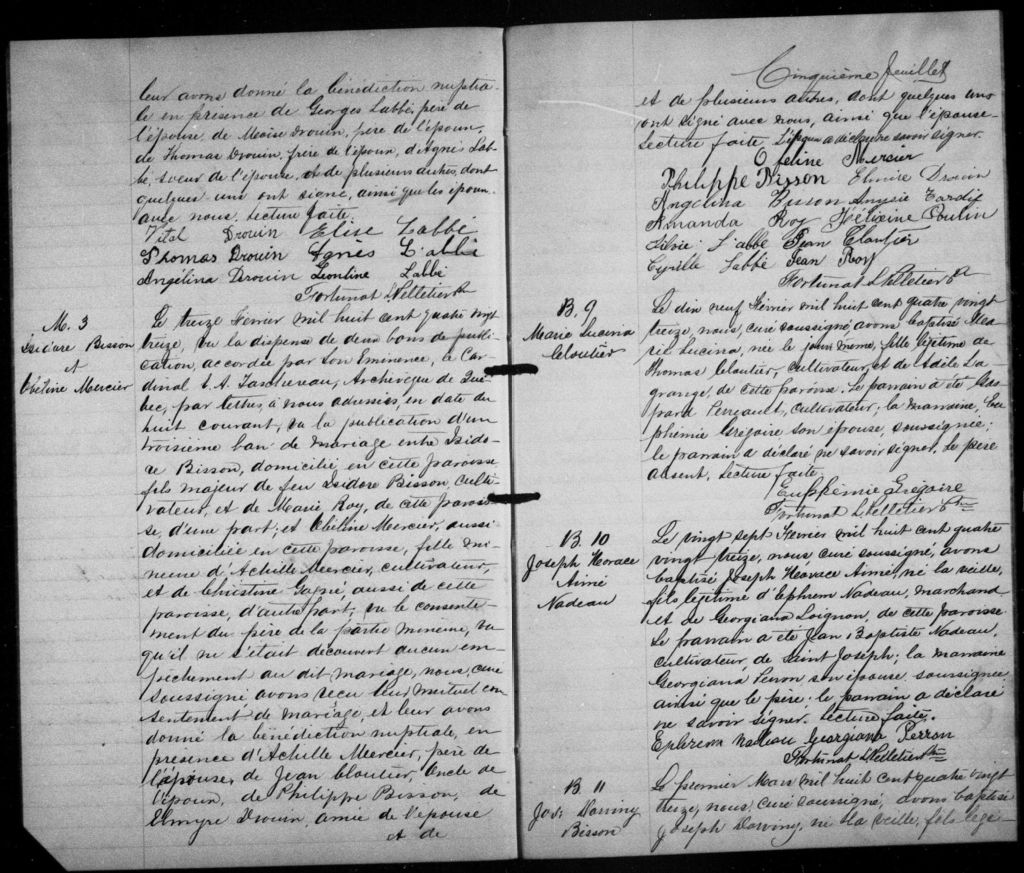 leur avons donné la bénédiction nuptia-
le en présence de Georges Labbé, père de
l'épouse, de Moïse Drouin, père de l'époux,
de Thomas Drouin, frère de l'époux, d'Agnès Lab-
bé, soeur de l'épouse, et de plusieurs autres, dont
quelques uns ont signé, ainsi que les époux
avec nous. Lecture faite.
Vital Drouin Elise Labbé
Thomas Drouin Agnès L'abbé
Angélina Drouin Léontine Labbé
Fortunat Pelletier Ptr
M. 3
Isidore Bisson
et
Obéline Mercier
Le treize Février mil huit cent quatre vingt
treize, vu la dispense de deux bans de publi-
cation, accordée par Son Eminence, le Car-
dinal E. A. Taschereau, Archevêque de Qué-
bec, par lettres, à nous adressées, en date du
huit courant, vu la publication d'un
troisième ban de mariage entre Isido-
re Bisson, domicilié en cette paroisse
fils majeur de feu Isidore Bisson, culti-
vateur, et de Marie Roy, de cette parois-
se, d'une part; et Obéline Mercier, aussi
domiciliée en cette paroisse, fille mi-
neure d'Achille Mercier, cultivateur,
et de Christine Gagné, aussi de cette
paroisse, d'autre part; vu le consente-
ment du père de la partie mineure, vu
qu'il ne s'était découvert aucun em-
pêchement au dit mariage, nous, curé
soussigné, avons reçu leur mutuel con
sentement de mariage, et leur avons
donné la bénédiction nuptiale, en
présence d'Achille Mercier, père de
l'épouse, de Jean Cloutier, oncle de
l'époux, de Philippe Bisson, de
Elmyre Drouin, amie de l'épouse
et de
Cinquième feuillet
et de plusieurs autres, dont quelques uns
ont signé avec nous, ainsi que l'épouse.
Lecture faite. L'époux a déclaré ne savoir signer.
Obeline Mercier
Philippe Bisson Elmire Drouin
Angelina Bisson Tardif
Amanda Roy Poulin
L'abbé Jean Cloutier
Cyrille Labbé Jean Roy
Fortunat Pelletier Ptr
B. 9
Marie Lucina
Cloutier
Le dix neuf Février mil huit cent quatre vingt
treize, nous, curé soussigné, avons baptisé Ma-
rie Lucina, née le jour même, fille légitime de
Thomas Cloutier, cultivateur, et de Adèle La
grange, de cette paroisse. Le parrain a été Gas-
pard Perreault, cultivateur; la marraine, Eu-
phémie Grégoire son épouse soussignée;
le parrain a déclaré ne savoir signer. Le père
absent. Lecture faite.
Euphémie Grégoire
Fortunat Pelletier Ptre
B. 10
Joseph Horace
Aimé
Nadeau
Le vingt sept Février mil huit cent quatre
vingt treize, nous curé soussigné, avons
baptisé Joseph Horace Aimé, né la veille,
fils légitime d'Ephrem Nadeau, marchand
et de Georgiana Loignon, de cette paroisse.
Le parrain a été Jean Baptiste Nadeau,
cultivateur, de Saint Joseph; la marraine
Georgiana Perron son épouse soussignée
ainsi que le père; le parrain a déclaré
ne savoir signer. Lecture faite.
Ephrem Nadeau Georgiana Perron
Fortunat Pelletier Ptre
B 11
Jos. Darving
Bisson
Le premier Mars mil huit cent quatre vingt
treize, nous, curé soussigné, avons baptisé
Joseph Darving, né la veille, fils légi-